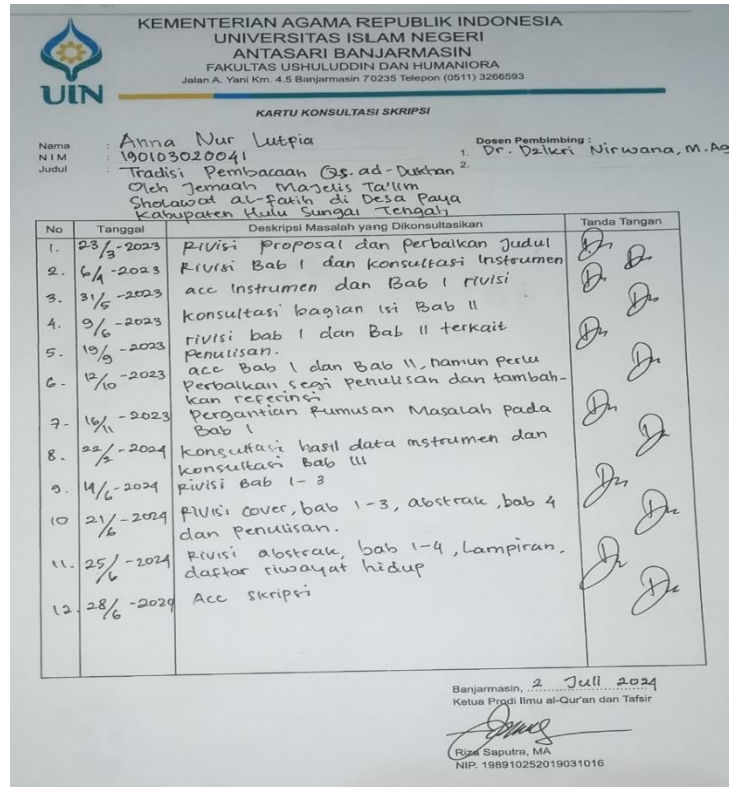 KEMENTERIAN AGAMA REPUBLIK INDONESIA
UNIVERSITAS ISLAM NEGERI
ANTASARI BANJARMASIN
FAKULTAS USHULUDDIN DAN HUMANIORA
Jalan A. Yani Km. 4.5 Banjarmasin 70235 Telepon (0511) 3266593
UIN
KARTU KONSULTASI SKRIPSI
Nama : Anna Nur Lutpia
NIM : 190103020041
Judul : Tradisi Pembacaan Qs. ad-Dukhan
Oleh Jemaah Majelis Ta'lim
Sholawat al-Fatih di Desa Paya
Kabupaten Hulu Sungai Tengah
Dosen Pembimbing :
1. Dr. Dzikri Nirwana, M.Ag
2.
No Tanggal Deskripsi Masalah yang Dikonsultasikan Tanda Tangan
1. 23/3-2023 Rivisi proposal dan perbaikan Judul
2. 6/4-2023 Rivisi Bab I dan konsultasi Instrumen
3. 31/5-2023 acc Instrumen dan Bab I rivisi
4. 9/6-2023 konsultasi bagian isi Bab II
5. 19/9-2023 rivisi bab I dan Bab II terkait
penulisan.
6. 12/10-2023 acc Bab I dan Bab II, namun perlu
Perbaikan segi penulisan dan tambah-
kan referinsi
7. 16/11-2023 Pergantian Rumusan Masalah pada
Bab I
8. 22/2-2024 konsultasi hasil data instrumen dan
konsultasi Bab III
9. 14/6-2024 Rivisi Bab 1-3
10 21/6-2024 Rivisi cover, bab 1-3, abstrak, bab 4
dan penulisan.
11. 25/6-2024 Rivisi abstrak, bab 1-4, Lampiran,
daftar riwayat hidup
12. 28/6-2024 Acc skripsi
Banjarmasin, 2 Juli 2024
Ketua Prodi Ilmu al-Qur'an dan Tafsir
Riza Saputra, MA
NIP. 198910252019031016